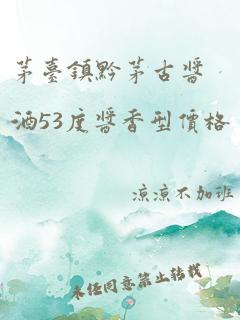 茅臺鎮黔茅古醬
酒53度醬香型價格
涼涼不加班
未经同意禁止转载